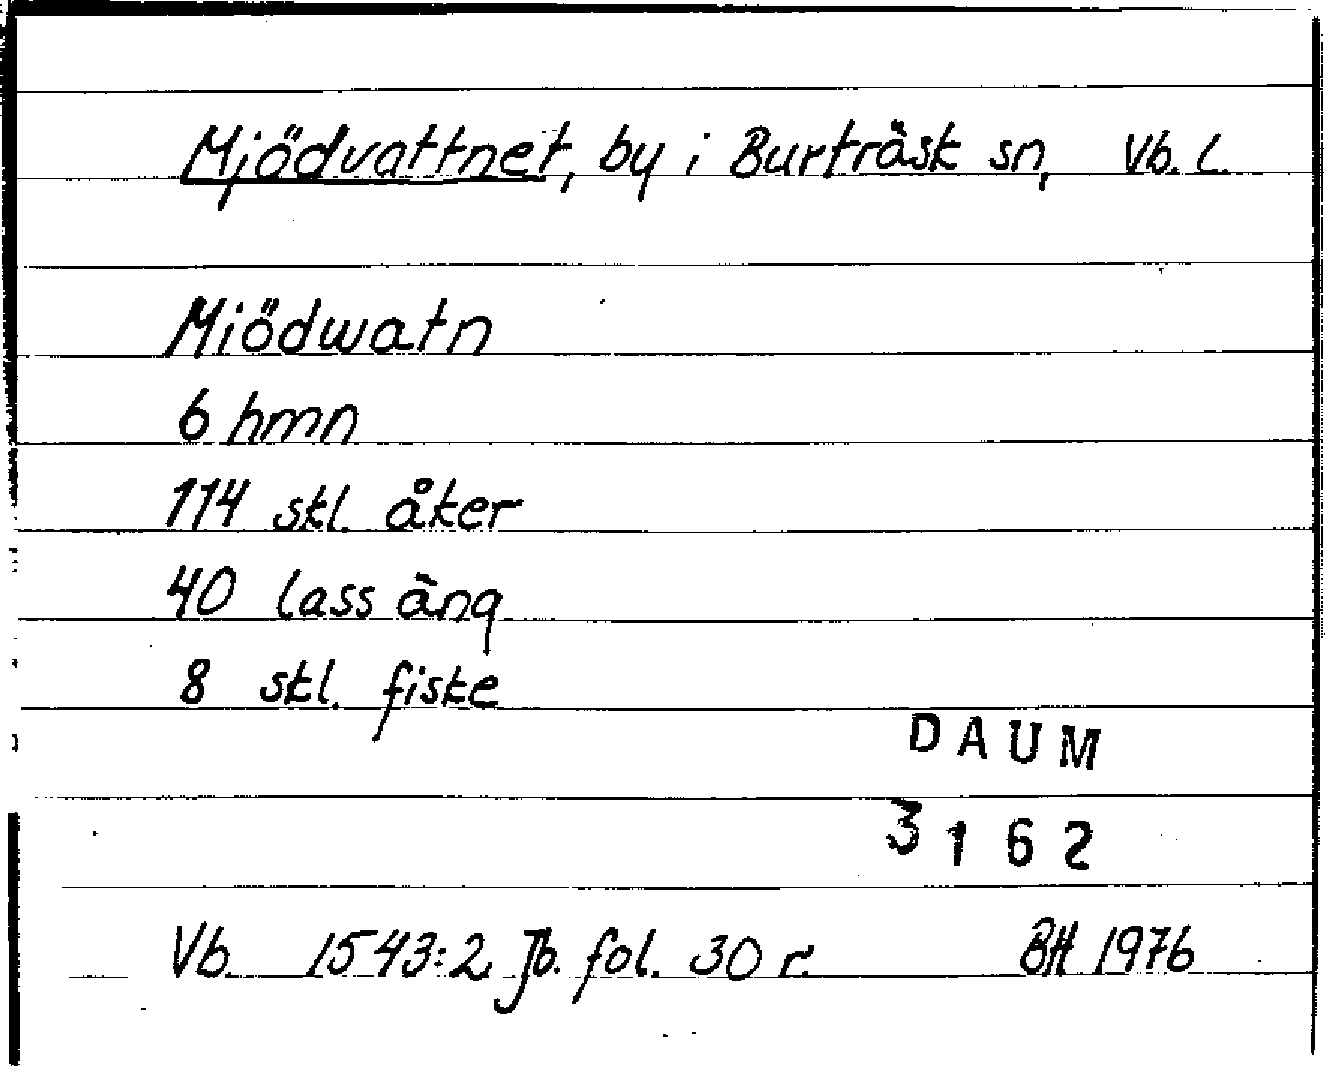 Mjödvattnet, by i Burträsk sn, Vb. l.
Miödwatn
6 hmn
114 skl. åker
40 lass äng
8 skl. fiske
DAUM
3162
Vb 1543:2 Jb. fol. 30 r. BH 1976